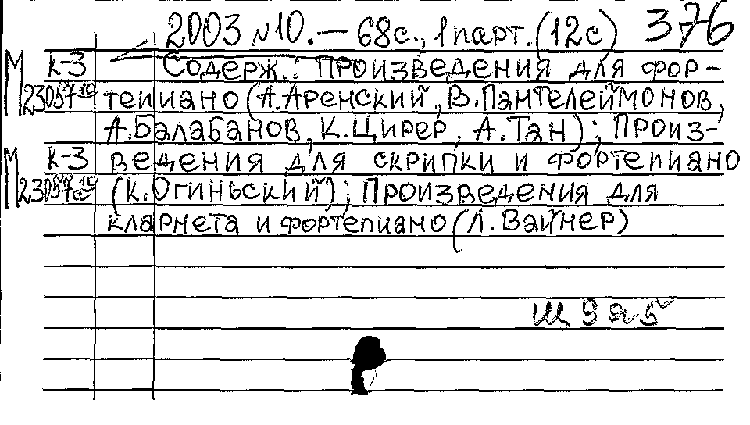 2003 №10.— 68с., 1 парт. (12с) 376
к-3 Содерж.: Произведения для фор-
М 23057 тепиано (А.Аренский, В.Пантелеймонов,
А.Балабанов, К.Цирер, А.Тан); Произ-
к-3 ведения для скрипки и фортепиано
М 23057 (К.Огиньский); Произведения для
кларнета и фортепиано (Л.Вайнер)